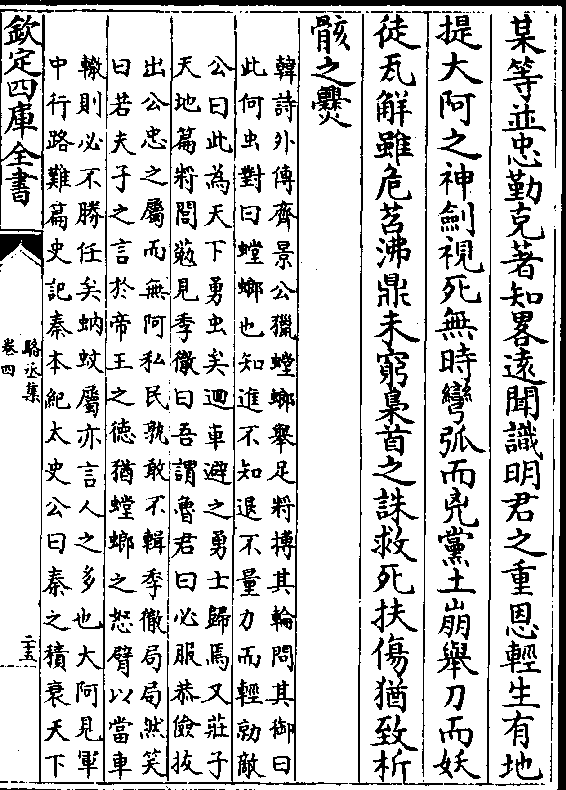 某等並忠勤克著知畧遠聞識明君之重恩輕生有地
提大阿之神劍視死無時彎弧而兇黨土崩舉刀而妖
徒瓦解雖危苕沸鼎未窮梟首之誅救死扶傷猶致析
骸之爨
韓詩外傳齊景公獵螳螂舉足將搏其輪問其御曰
此何虫對曰螳螂也知進不知退不量力而輕勍敵
公曰此為天下勇虫矣迴車避之勇士歸焉又莊子
天地篇將閭葂見季徹曰吾謂魯君曰必服恭儉拔
出公忠之屬而無阿私民孰敢不輯季徹局局然笑
曰若夫子之言於帝王之德猶螳螂之怒臂以當車
轍則必不勝任矣蚋蚊屬亦言人之多也大阿見軍
中行路難篇史記秦本紀太史公曰秦之積衰天下
欽定四庫全書
駱丞集
卷四
二十五